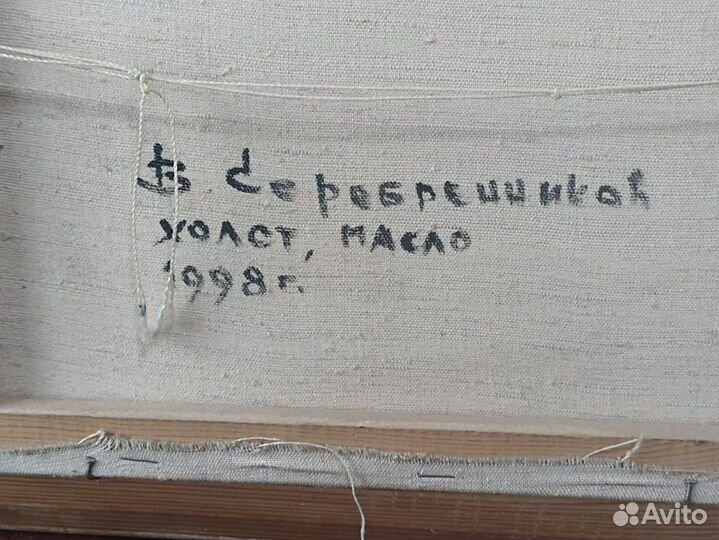 В. Серебренников
холст, масло
1998 г.
Avito